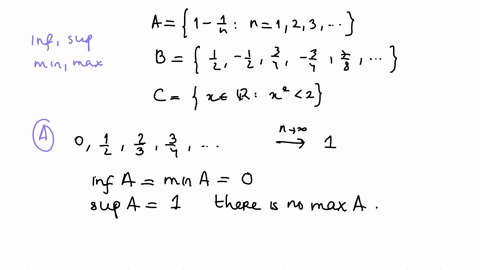 inf, sup
min, max
A = { 1 - 1/n : n = 1, 2, 3, ... }
B = { 1/2, -1/2, 3/4, -3/4, 7/8, ... }
C = { x ∈ ℝ : x² < 2 }
A 0, 1/2, 2/3, 3/4, ... n→∞ ⟶ 1
inf A = min A = 0
sup A = 1 there is no max A .